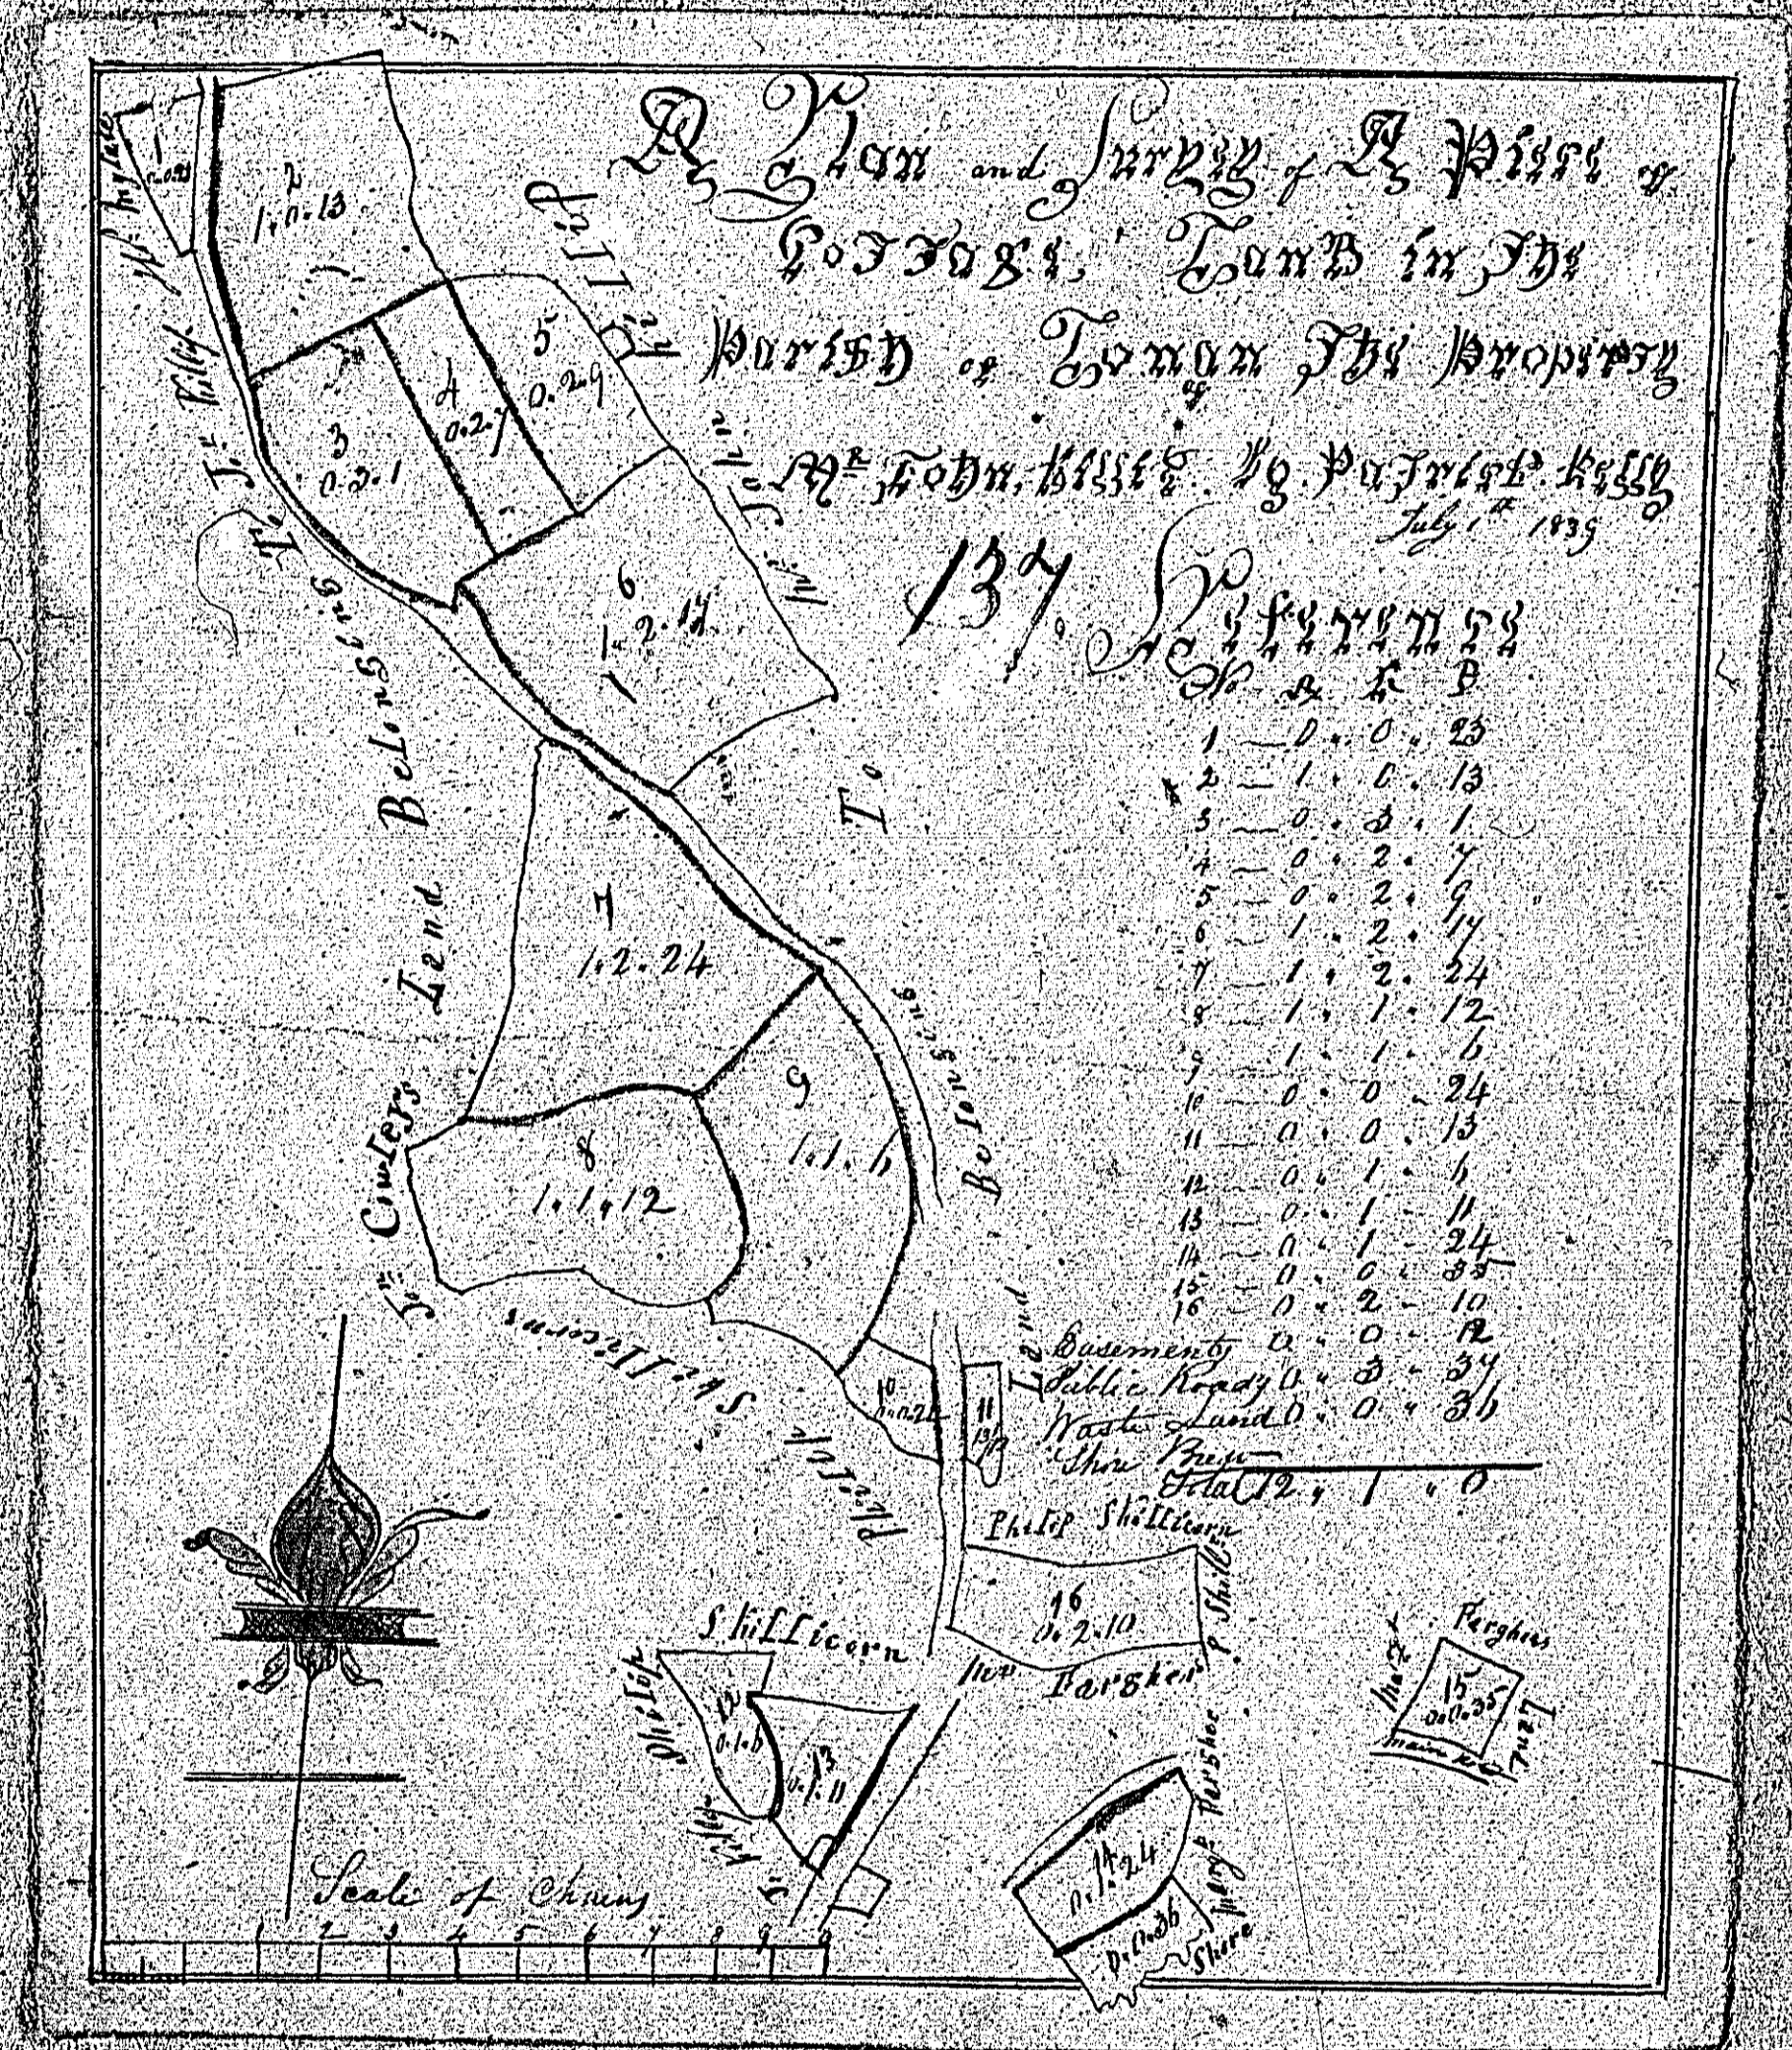 A Plan and Survey of A Piece of
Cottage Land in The
Parish of Lonan The Property
of
Mr John Killip By Patrick Kelly
July 1st 1839
137.
Reference
No A R P
1 — 0 " 0 " 23
2 — 1 " 0 " 13
3 — 0 " 3 " 1
4 — 0 " 2 " 7
5 — 0 " 2 " 9
6 — 1 " 2 " 17
7 — 1 " 2 " 24
8 — 1 " 1 " 12
9 — 1 " 1 " 6
10 — 0 " 0 " 24
11 — 0 " 0 " 13
12 — 0 " 1 " 6
13 — 0 " 1 " 11
14 — 0 " 1 " 24
15 — 0 " 0 " 35
16 — 0 " 2 " 10
Basements 0 " 0 " 12
Public Roads 0 " 3 " 37
Waste Land 0 " 0 " 36
Shore
Total 12 " 1 " 0
1
0.0.23
2
1.0.13
3
0.3.1
4
0.2.7
5
0.2.9
6
1.2.17
7
1.2.24
8
1.1.12
9
1.1.6
10
0.0.24
11
13P
12
0.1.6
13
0.1.11
14
0.1.24
0.0.36
15
0.0.35
16
0.2.10
Jon Cowleys Land Belonging To Jn Killip
Land Belonging To Mr John Killip
Philip Skillicorns
Philip Skillicorn
P Skill
Farsher
Philip Skillicorn
Jn Killip
Margt Farsher
Shore
Margt Farghers Land
main Ro
Scale of Chains
1 2 3 4 5 6 7 8 9